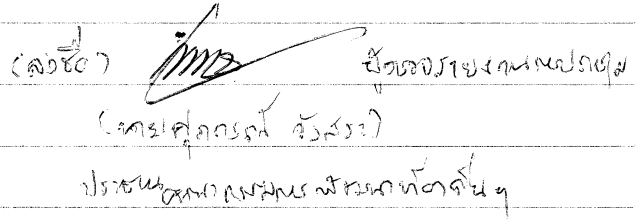 (ลงชื่อ) ผู้ตรวจรายงานการประชุม
(นายศุภกรณ์ วังสระ)
ประธานคณะกรรมการพัฒนาท้องถิ่นฯ